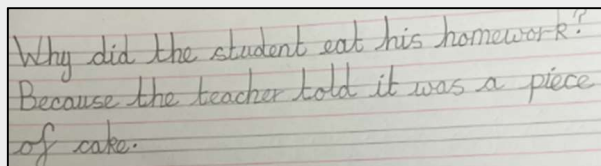 Why did the student eat his homework?
Because the teacher told it was a piece
of cake.